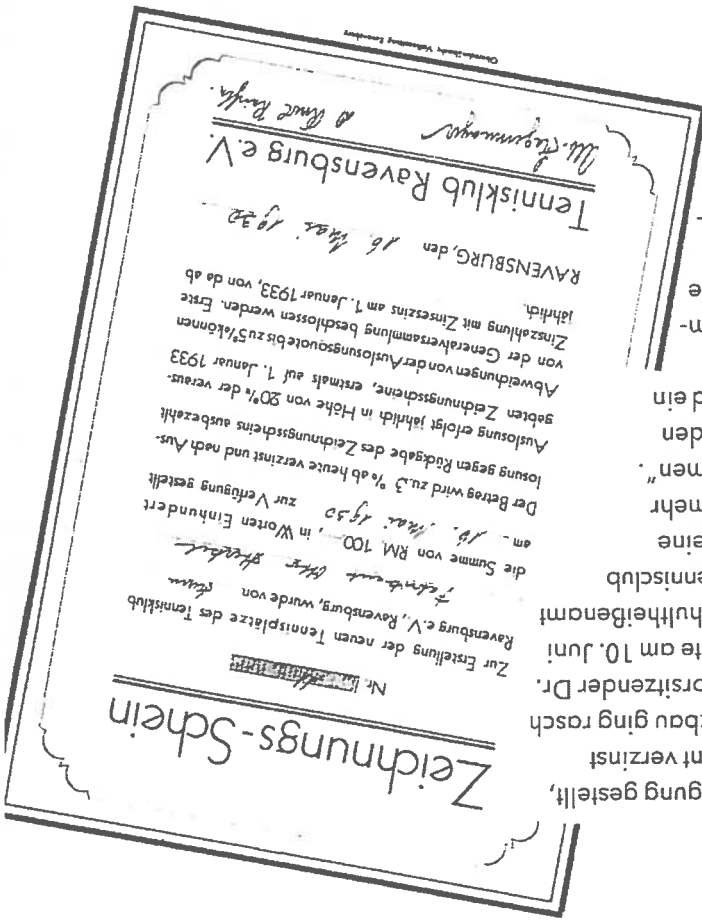 Zeichnungs-Schein
Nr.
Zur Erstellung der neuen Tennisplätze des Tennisklub
Ravensburg e.V., Ravensburg, wurde von Herrn
Fabrikant Otto
die Summe von RM 100.–, in Worten Einhundert
am 16. Mai 1930 zur Verfügung gestellt
Der Betrag wird zu 3% ab heute verzinst und nach Aus-
losung gegen Rückgabe des Zeichnungsscheins ausbezahlt
Auslosung erfolgt jährlich in Höhe von 20% der veraus-
gabten Zeichnungsscheine, erstmals auf 1. Januar 1933
Abweichungen von der Auslosungsquote bis zu 5% können
von der Generalversammlung beschlossen werden. Erste
Zinszahlung mit Zinseszins am 1. Januar 1933, von da ab
jährlich.
RAVENSBURG, den 16. Mai 1932
Tennisklub Ravensburg e.V.
gung gestellt,
nt verzinst
zbau ging rasch
orsitzender Dr.
te am 10. Juni
hultheißenamt
ennisclub
eine
mehr
men".
den
d ein
n-
e